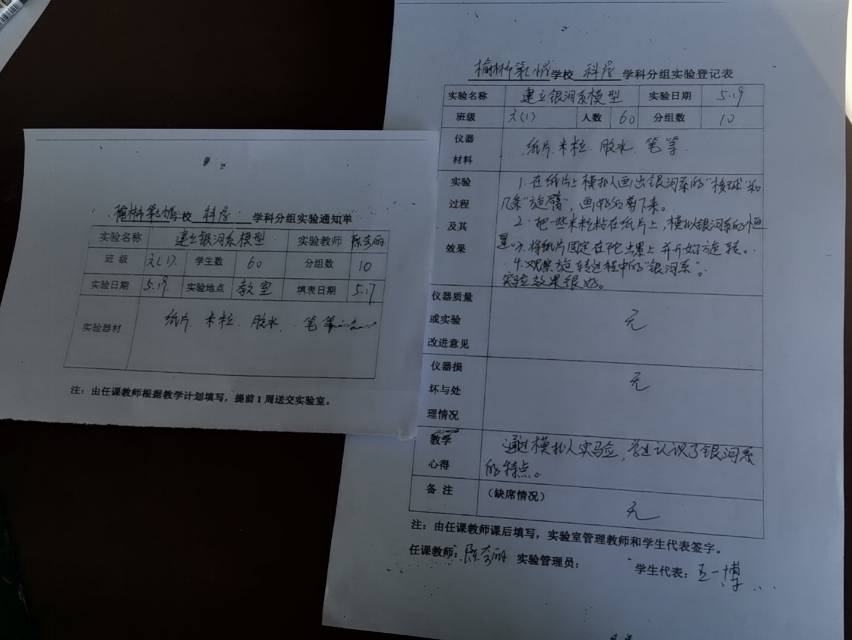 学校 科学 学科分组实验通知单
实验名称 建立银河系模型 实验教师
班 级 学生数 60 分组数 10
实验日期 5.19 实验地点 教室 填表日期 5.17
实验器材 纸片 米粒 胶水 笔等
注：由任课教师根据教学计划填写，提前1周送交实验室。
学校 科学 学科分组实验登记表
实验名称 建立银河系模型 实验日期 5.19
班级 人数 60 分组数 10
仪器
材料
纸片 米粒 胶水 笔等
实验
过程
及其
效果
1.在纸片上模拟画出银河系的“核球”和
几条“旋臂”，画好的剪下来。
2.把一些米粒粘在纸片上，模拟银河系的恒
星。3.将纸片固定在陀螺上并开始旋转。
4.观察旋转过程中的“银河系”。
实验效果很好。
仪器质量
或实验
改进意见
无
仪器损
坏与处
理情况
无
教学
心得
通过模拟实验，学生认识了银河系
的特点。
备 注 （缺席情况）
无
注：由任课教师课后填写，实验室管理教师和学生代表签字。
任课教师： 实验管理员： 学生代表： 王一博